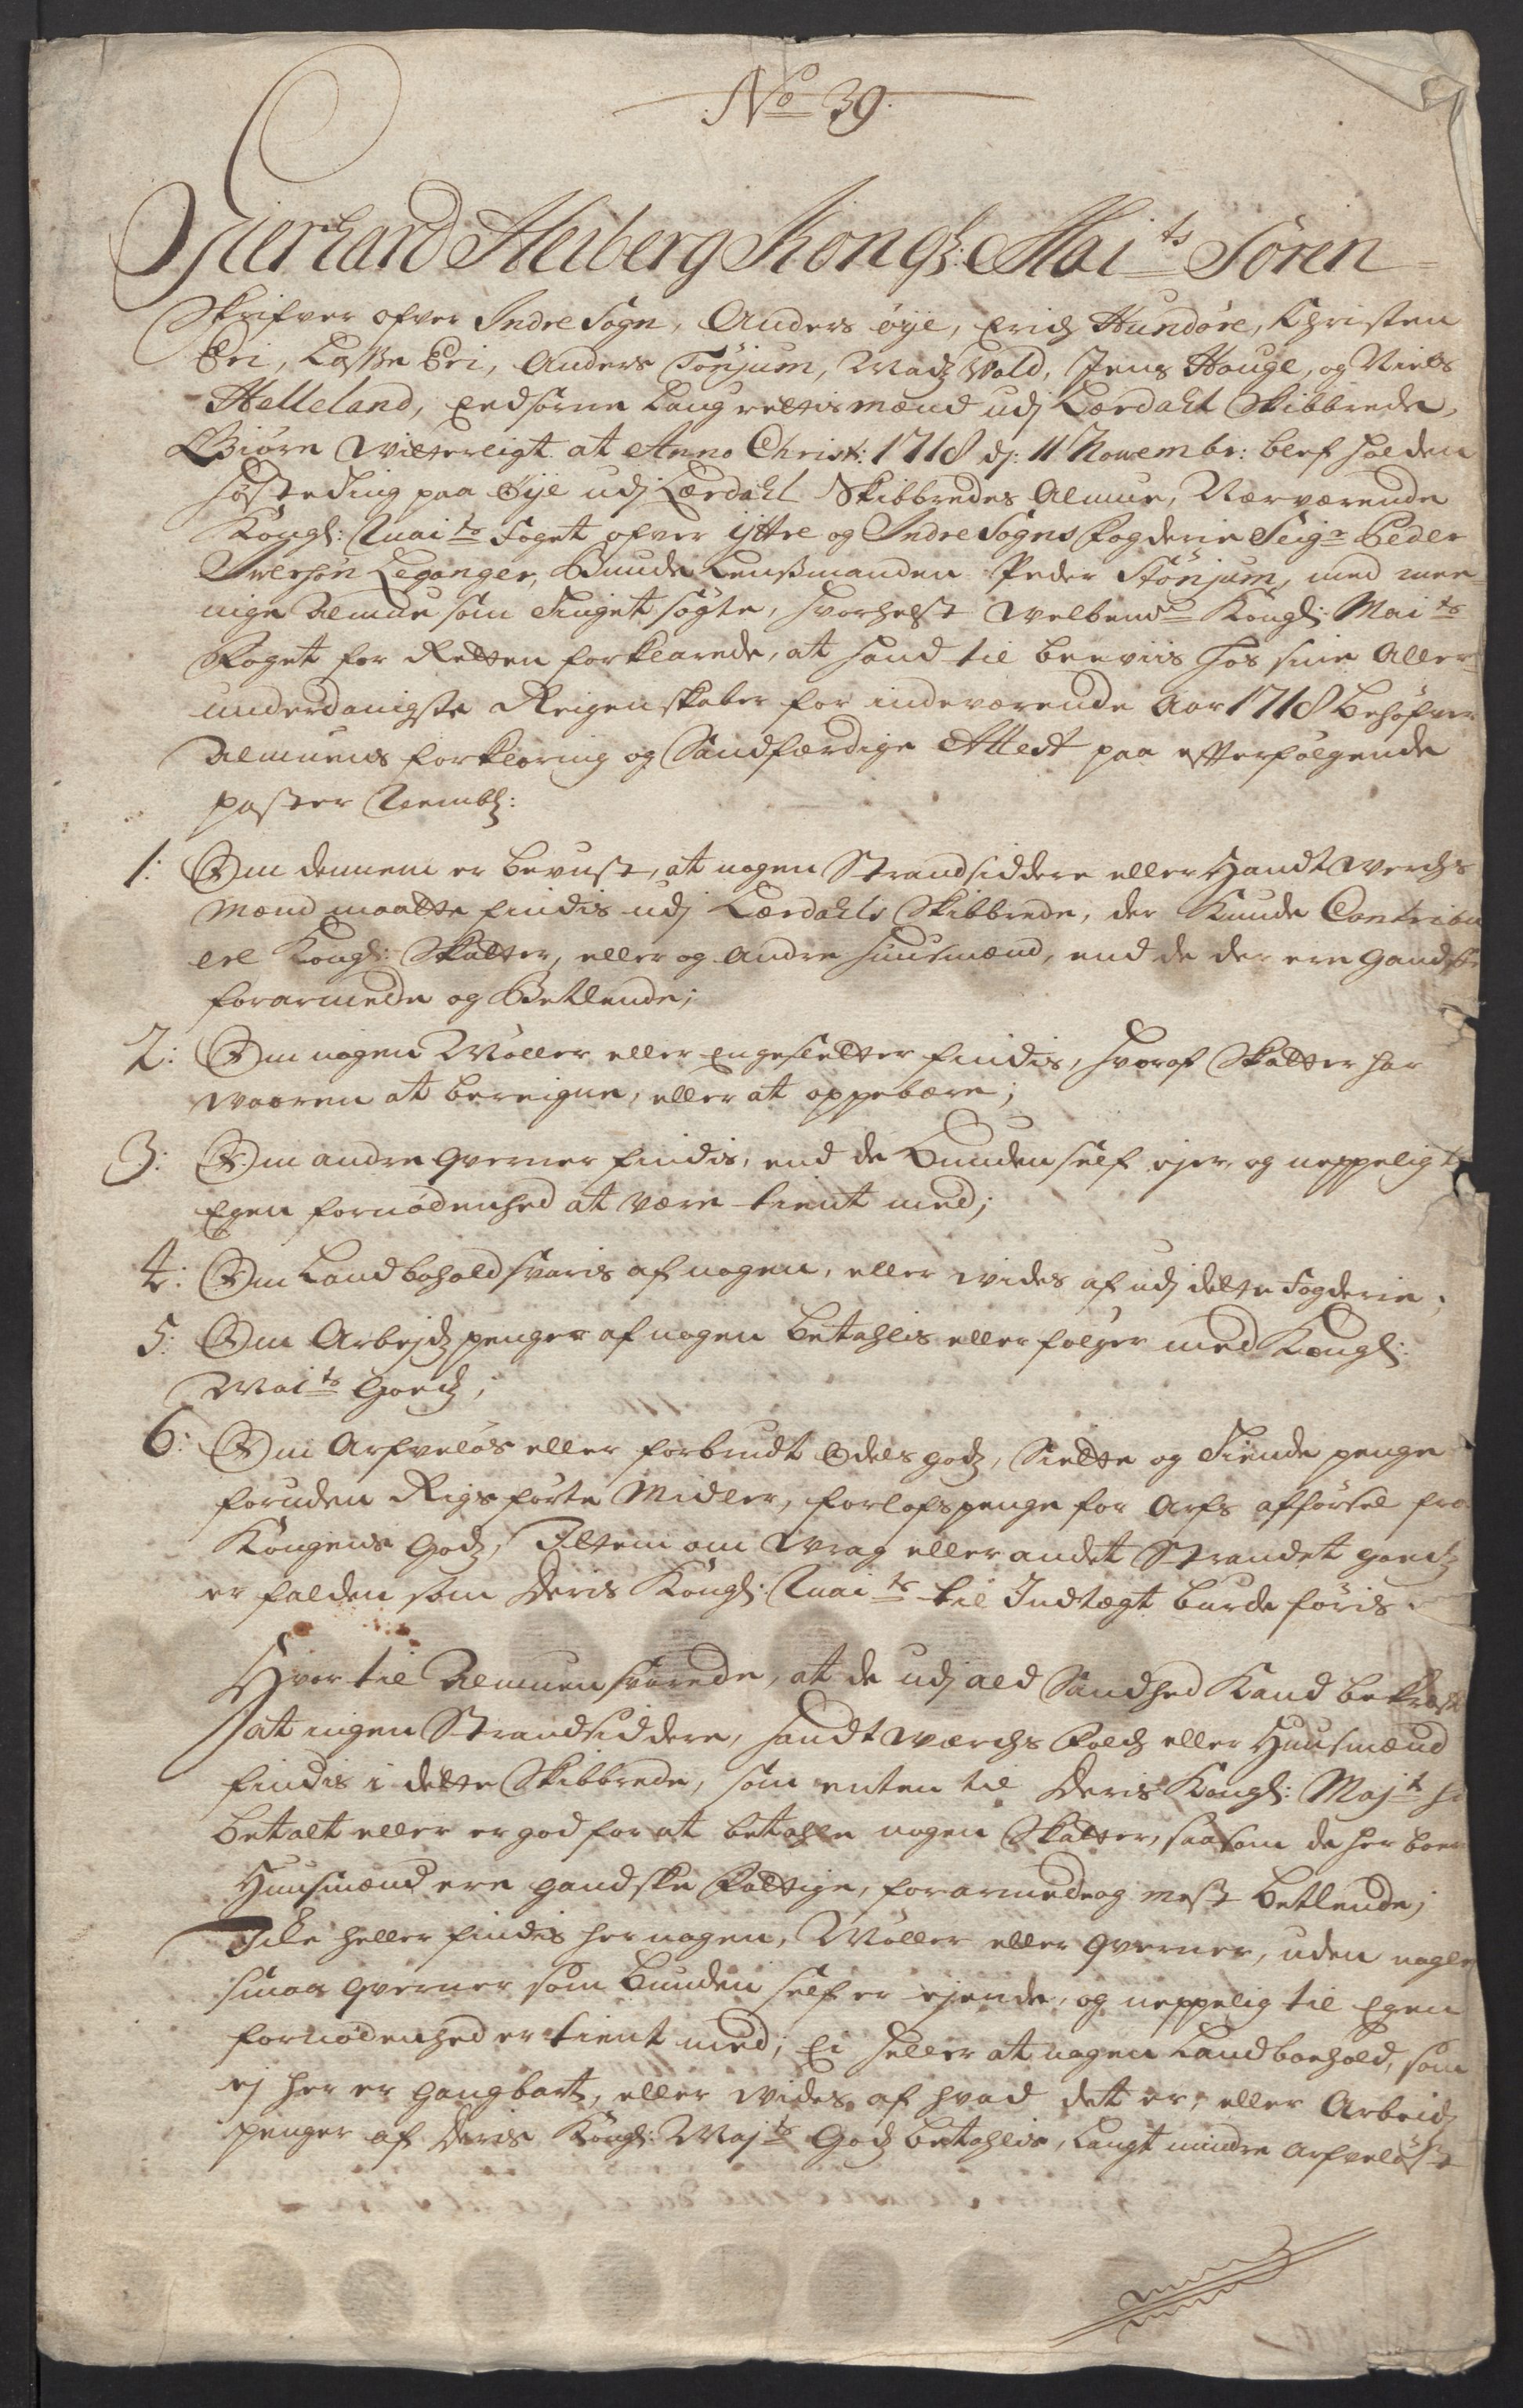 No 39.
Gierhard Heiberg Kongl: Mai ts Soren-
Skrifver ofver Indre Sogn, Anders Øye, Erich Hundøre, Christen
Eri, Lasse Eri, Anders Tønjum, Madz Vold, Jens Hauge, og Niels
Helleland, Eedsorne Laugrettismænd udj Lærdahl Skibbrede,
Giøre Witterligt at Anno Christi: 1718 dj: 11 Novembr: blef holden
høsteting paa Øye udj Lærdahl Skibbredes Almue, Nærværende
Kongl: Mai ts Foget ofver ijttre og Indre Sogns Fogderie Seigr Peder
Iversøn Leganger, Bunde Lensmanden Peder Stønjum, med mee-
nige Almue som Tinget søgte, hvorhelst Welbemte Kongl: Mai ts
Foget for Retten forklarede, at hand til beviis hos sine Aller-
underdanigste Reigenskaber for indeværende Aar 1718 behøfver
Almuens forklaring og Sandfærdige Attest paa efterfølgende
poster Nembl:
1: Om dennem er bevust, at nogen Strandsiddere eller Handtwerchs
Mænd maatte findis udj Lærdahls Skibbrede, der kunde Contribu
ere Kongl: Skatter, eller og andre huusmænd, end de der ere gandske
forarmede og Betlende;
2: Om nogen Møller eller Engesletter findis, hvoraf Skatter har
waaren at bereigne, eller at oppebære;
3: Om andre qverner findis, end de Bunden self ejer, og neppelig t
Egen fornødenhed at være tient med;
4: Om Landbohold svaris af nogen, eller wides af udj dette Fogderie;
5: Om Arbejdz penger af nogen betahlis eller følger med Kongl:
Mai ts Goedz;
6: Om Arfveløs eller forbrudt Odels godz, Siette og Tiende penge
foruden Rigs førte Midler, forlofs penge for Arfs afførsel fra
Kongens Godz, Ittem om Wrag eller andet Strandet goedz
er falden som Deris Kongl: Mai ts til Indtægt burde føris.
Hvor til Almuen svarede, at de udj ald Sandhed kand bekræft
at ingen Strandsiddere, handtwærchs Folch eller Huusmænd
findis i dette Skibbrede, som enten til Deris Kongl: Maj t ha
betalt eller er god for at betahle nogen Skatter, saasom de her boen
Huusmænd ere gandske Fattige, forarmede og mest betlende;
Icke heller findis her nogen, Møller eller qverner, uden nogle
smaa qverner som bunden self er ejende, og neppelig til Egen
fornødenhed er tient med; Ei heller at nogen Landboehold, som
ej her er gangbart, eller wides af hvad det er, eller Arbeidz
penger af Deris Kongl: Maj ts Godz betahlis, langt mindre Arfveløst